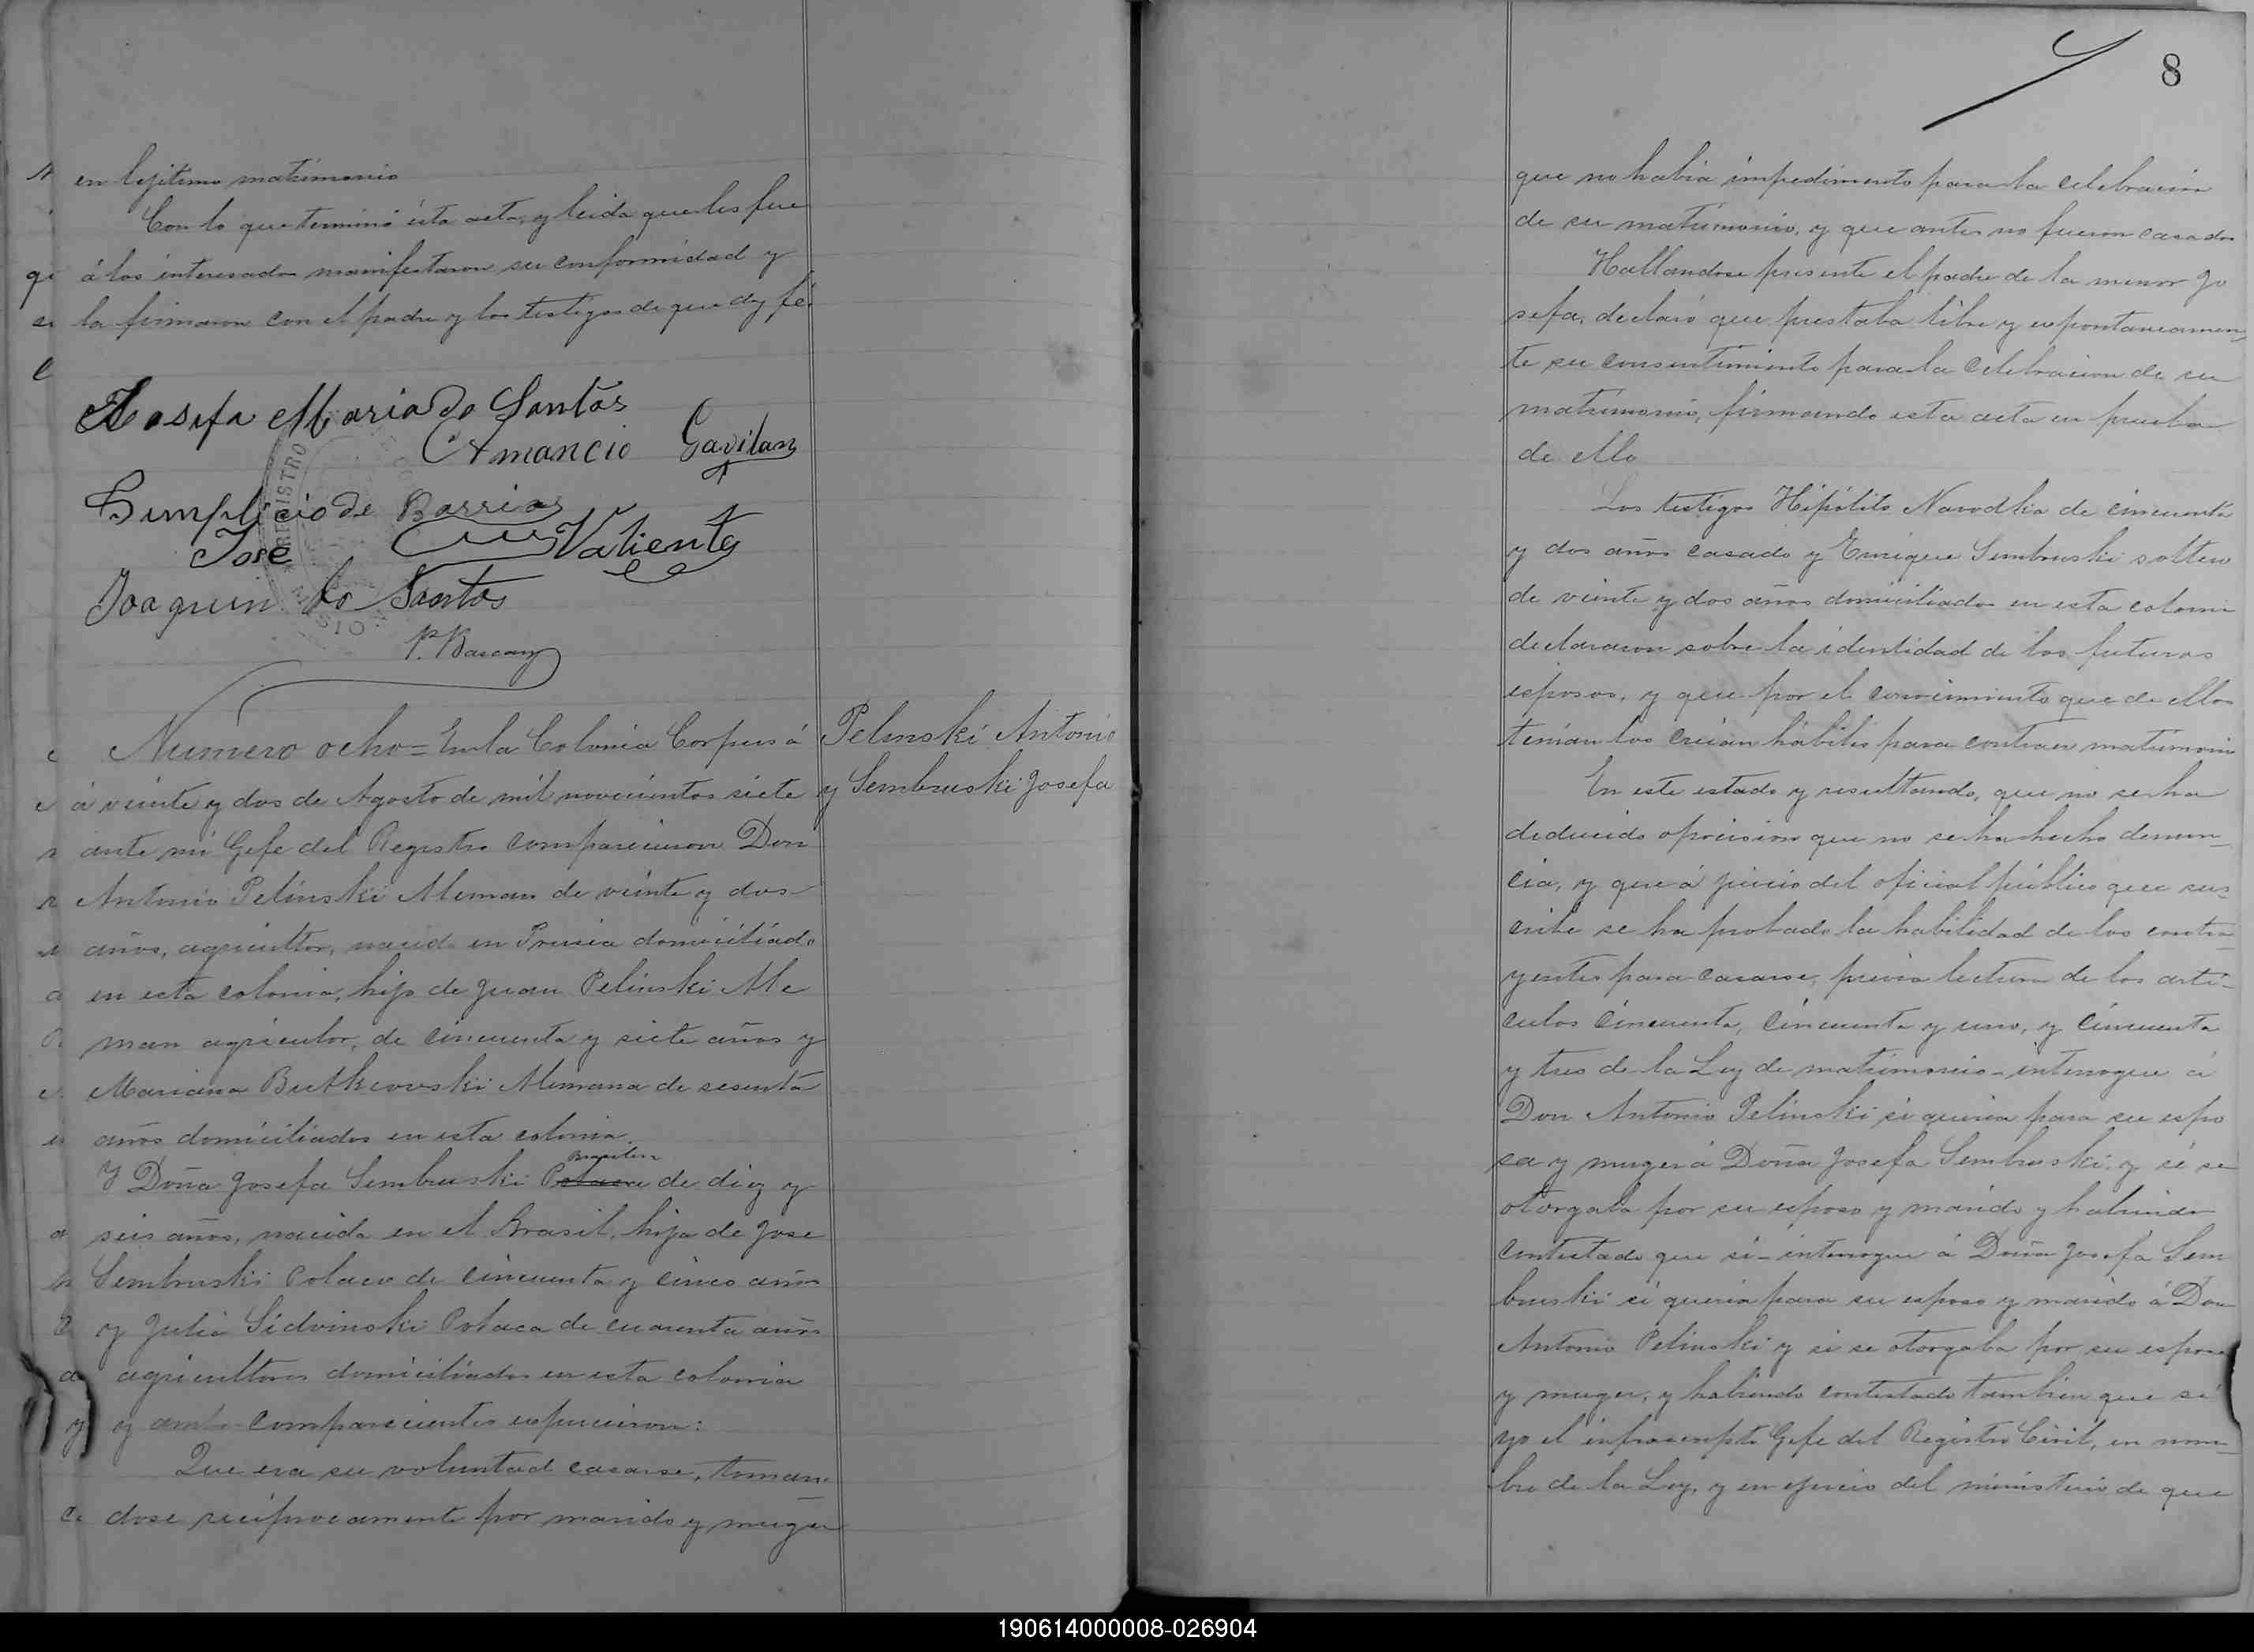 en lejitimo matrimonio
Con lo que terminó ésta acta, y leida que les fue
á los interesados manifestaron su conformidad y
la firmaron con el padre y los testigos de que doy fé
Josefa Maria do Santos
Amancio Gavilan
Simplicio de Barrios
José Valiente
Joaquin do Santos
Numero ocho = En la Colonia Corpus á
á veinte y dos de Agosto de mil novecientos siete
ante mi Gefe del Registro comparecieron Don
Antonio Pelinski Aleman de veinte y dos
años, agricultor, nacido en Prusia domiciliado
en esta colonia, hijo de Juan Pelinski Ale
man agricultor, de cincuenta y siete años y
Mariana Butkowski Alemana de sesenta
años domiciliados en esta colonia.
Y Doña Josefa Sembruski Brasilera de diez y
seis años, nacida en el Brasil, hija de Jose
Sembruski Polaco de cincuenta y cinco años
y Julia Sidvinski Polaca de cuarenta años
agricultores domiciliados en esta colonia
y ambos comparecientes expusieron:
Que era su voluntad casarse, toman
dose reciprocamente por marido y muger
Pelinski Antonio
y Sembruski Josefa
8
que no habia impedimento para la celebracion
de su matrimonio, y que antes no fueron casados
Hallandose presente el padre de la menor Jo
sefa, declaró que prestaba libre y expontaneamen
te su consentimiento para la celebracion de su
matrimonio, firmando esta acta en prueba
de ello
Los testigos Hipólito Navodka de cincuenta
y dos años casado y Enrique Sembruski soltero
de veinte y dos años domiciliados en esta colonia
declararon sobre la identidad de los futuros
esposos, y que por el conocimiento que de ellos
tenian los creian hábiles para contraer matrimonio
En este estado y resultando, que no se ha
deducido oposicion que no se ha hecho denun
cia, y que á juicio del oficial público que sus
cribe se ha probado la habilidad de los contra
yentes para casarse, previa lectura de los arti
culos cincuenta, cincuenta y uno, y cincuenta
y tres de la Ley de matrimonio - interrogue á
Don Antonio Pelinski si queria para su espo
sa y muger á Doña Josefa Sembruski y si se
otorgaba por su esposo y marido y habiendo
contestado que si - interrogue á Doña Josefa Sem
bruski si queria para su esposo y marido á Don
Antonio Pelinski y si se otorgaba por su esposa
y muger, y habiendo contestado tambien que si
yo el infrascripto Gefe del Registro Civil, en nom
bre de la Ley, y en ejercicio del ministerio de que
190614000008-026904